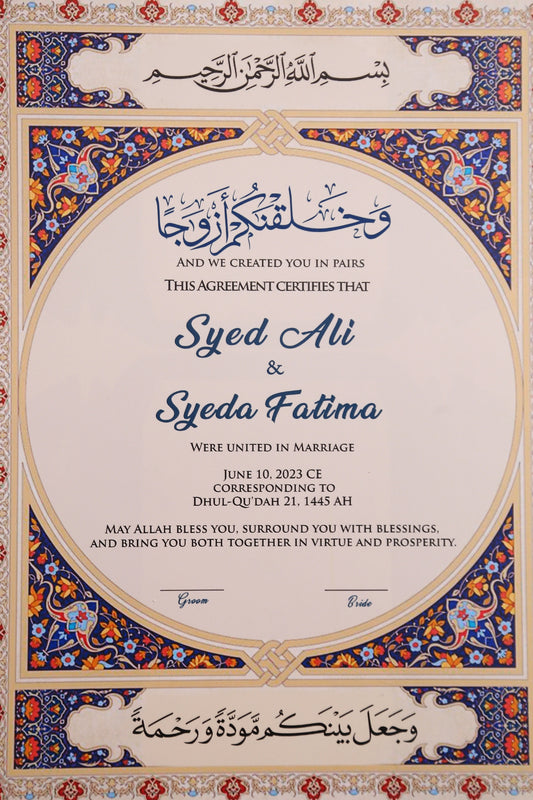 بِسْمِ اللهِ الرَّحْمٰنِ الرَّحِيمِ
وَخَلَقْنٰكُمْ أَزْوَٰجًا
AND WE CREATED YOU IN PAIRS
THIS AGREEMENT CERTIFIES THAT
Syed Ali
&
Syeda Fatima
WERE UNITED IN MARRIAGE
JUNE 10, 2023 CE
CORRESPONDING TO
DHUL-QU'DAH 21, 1445 AH
MAY ALLAH BLESS YOU, SURROUND YOU WITH BLESSINGS,
AND BRING YOU BOTH TOGETHER IN VIRTUE AND PROSPERITY.
Groom Bride
وَجَعَلَ بَيْنَكُمْ مَوَدَّةً وَرَحْمَةً